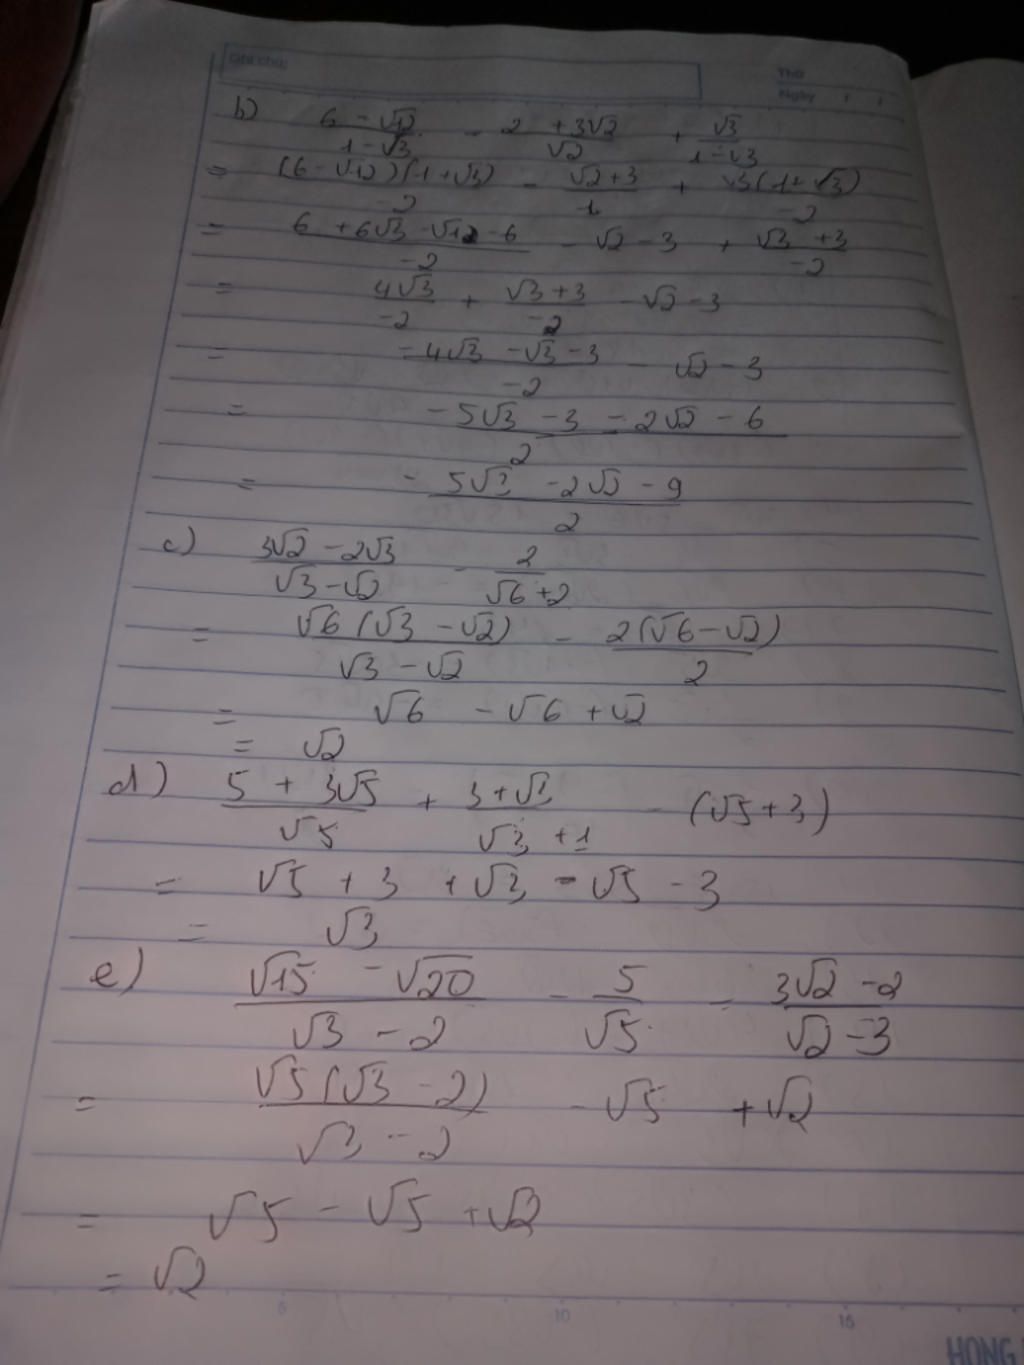 Ghi chú:
Thứ
Ngày / /
b) (6 - √12)/(1 - √3) - (2 + 3√2)/√2 + √3/(1 - √3)
= (6 - √12)(1 + √3)/-2 - (√2 + 3)/1 + √3(1 + √3)/-2
= (6 + 6√3 - √12 - 6)/-2 - √2 - 3 + (√3 + 3)/-2
= 4√3/-2 + (√3 + 3)/-2 - √2 - 3
= (-4√3 - √3 - 3)/-2 - √2 - 3
= (-5√3 - 3 - 2√2 - 6)/2
= - (5√3 - 2√2 - 9)/2
c) (3√2 - 2√3)/(√3 - √2) - 2/(√6 + 2)
= √6(√3 - √2)/(√3 - √2) - 2(√6 - √2)/2
= √6 - √6 + √2
= √2
d) (5 + 3√5)/√5 + (3 + √3)/(√3 + 1) - (√5 + 3)
= √5 + 3 + √3 - √5 - 3
= √3
e) (√15 - √20)/(√3 - 2) - 5/√5 - (3√2 - 2)/(√2 - 3)
= √5(√3 - 2)/(√3 - 2) - √5 + √2
= √5 - √5 + √2
= √2
5 10 15
HONG